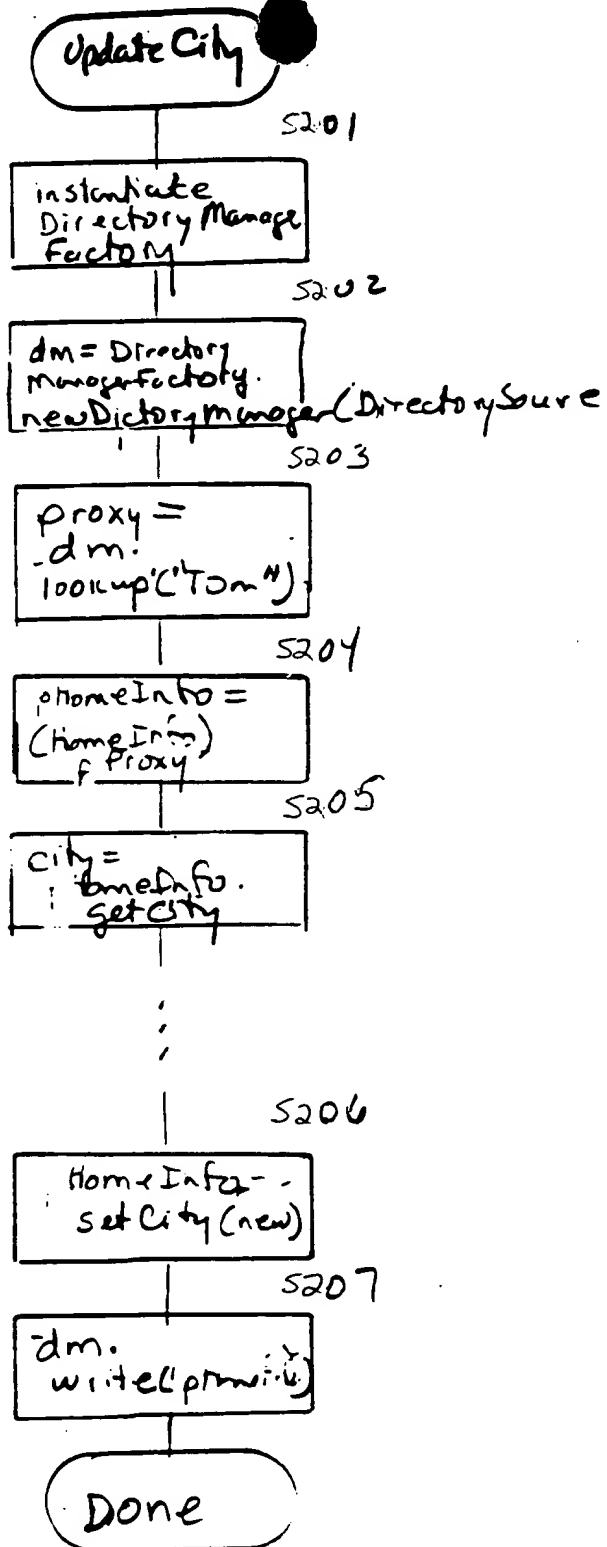 Update City
5201
instantiate
Directory Manage
Factory
5202
dm = Directory
ManagerFactory.
newDictoryManager(DirectorySource
5203
proxy =
dm.
lookup("Tom")
5204
HomeInfo =
(HomeInfo)
Proxy
5205
City =
HomeInfo.
getCity
5206
HomeInfo
setCity (new)
5207
dm.
write(
Done